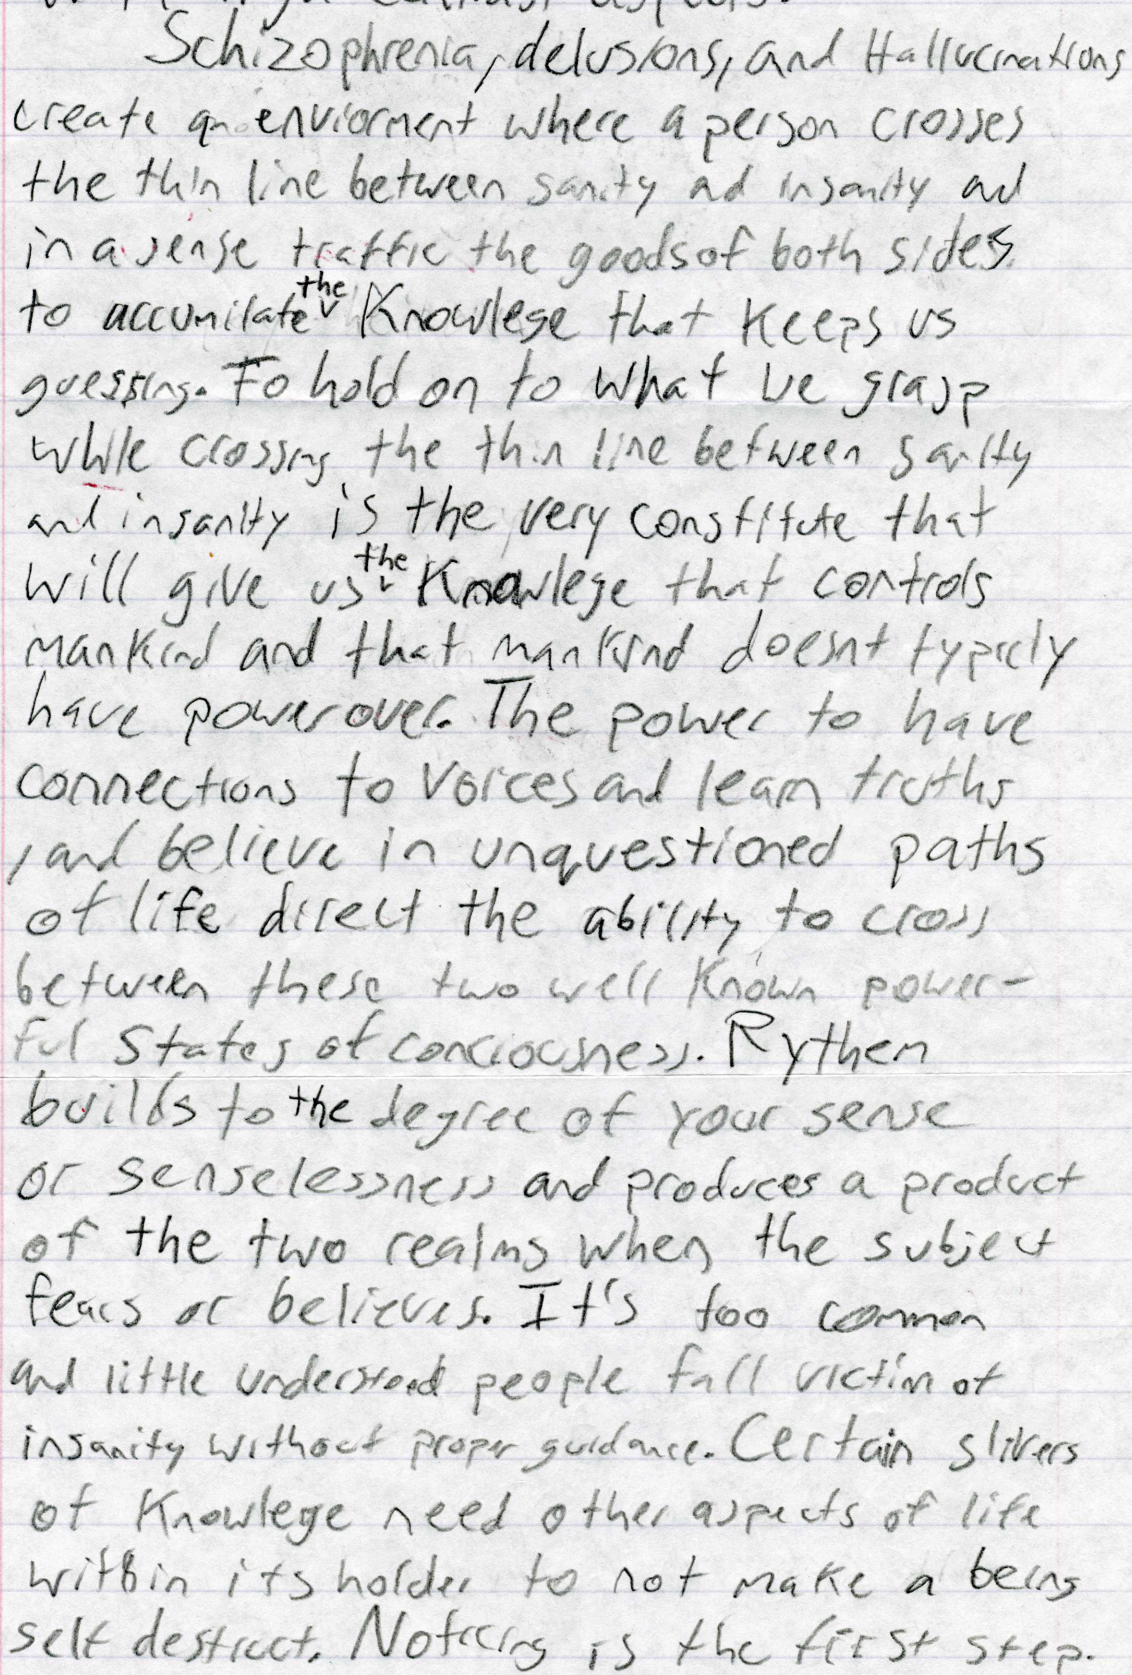 Schizophrenia, delusions, and Hallucinations
create an enviorment where a person crosses
the thin line between sanity ad insanity and
in a sense traffic the goods of both sides
to accumilate the Knowlege that keeps us
guessing. To hold on to what we grasp
while crossing the thin line between sanity
and insanity is the very constitute that
will give us the Knowlege that controls
mankind and that mankind doesnt typicly
have power over. The power to have
connections to voices and learn truths
, and believe in unquestioned paths
of life direct the ability to cross
between these two well known power-
ful states of conciousness. Rythem
builds to the degree of your sense
or senselessness and produces a product
of the two realms when the subject
fears or believes. It's too common
and little understood people fall victim of
insanity without proper guidance. Certain slivers
of Knowlege need other aspects of life
within its holder to not make a being
self destruct. Noticing is the first step.